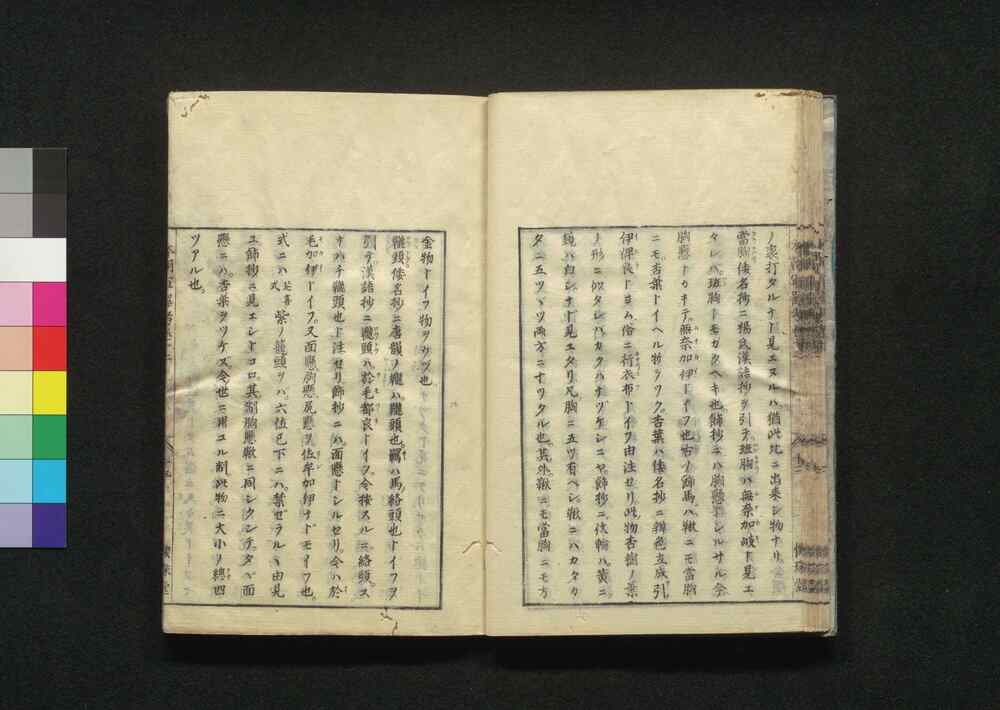 ノ裏打タルナト見エヌルハ猶此比ニ出来シ物ナリ
當胸倭名抄ニ楊氏漢語抄ヲ引テ班胸ハ無奈加岐ト見エ
タレバ班胸トモカクヘキ也餝抄ニハ胸懸トシルサル今
胸懸トカキテ無奈加伊トイフ也古ノ餝馬ハ鞦ニモ當胸
ニモ杏葉トイヘル物ヲツク杏葉ハ倭名抄ニ辨色立成引
伊俗ニ行衣布トイフ由注セリ此物杏樹ノ葉
ノ形ニ似タレバカクハナヅケシニヤ餝抄ニ伏輪ハ黄ニ
鏡ハ白シナト見エタリ凡胸ニ五ツ有ベシ鞦ニハカタカ
タニ五ツヽツ両方ニ十ツケタル也其外鞦ニモ當胸ニモ方
金物トイフ物ヲウツ也
韉頭倭名抄ニ唐韻ノ韉ハ龓頭也羈ハ馬絡頭也トイフヲ
引テ漢語抄ニ龓頭ハ於毛都良トイフ今按スルニ絡頭ス
ナハチ龓頭也ト注セリ餝抄ニハ面懸トシルセリ今ハ於
毛加伊トイフ又面懸胸懸尻懸ヲ佐牟加伊ナドモイフ也
式ニハ延喜式紫ノ龍頭ヲバ六位已下ニハ禁ゼラルヽ由見
ユ餝抄ニ見エシトコロ其制胸懸鞦ニ同シクシテタヾ面
懸ニハ杏葉ヲツケス今世ニ用ユル制此物ニ大小ノ總四
ツアル也